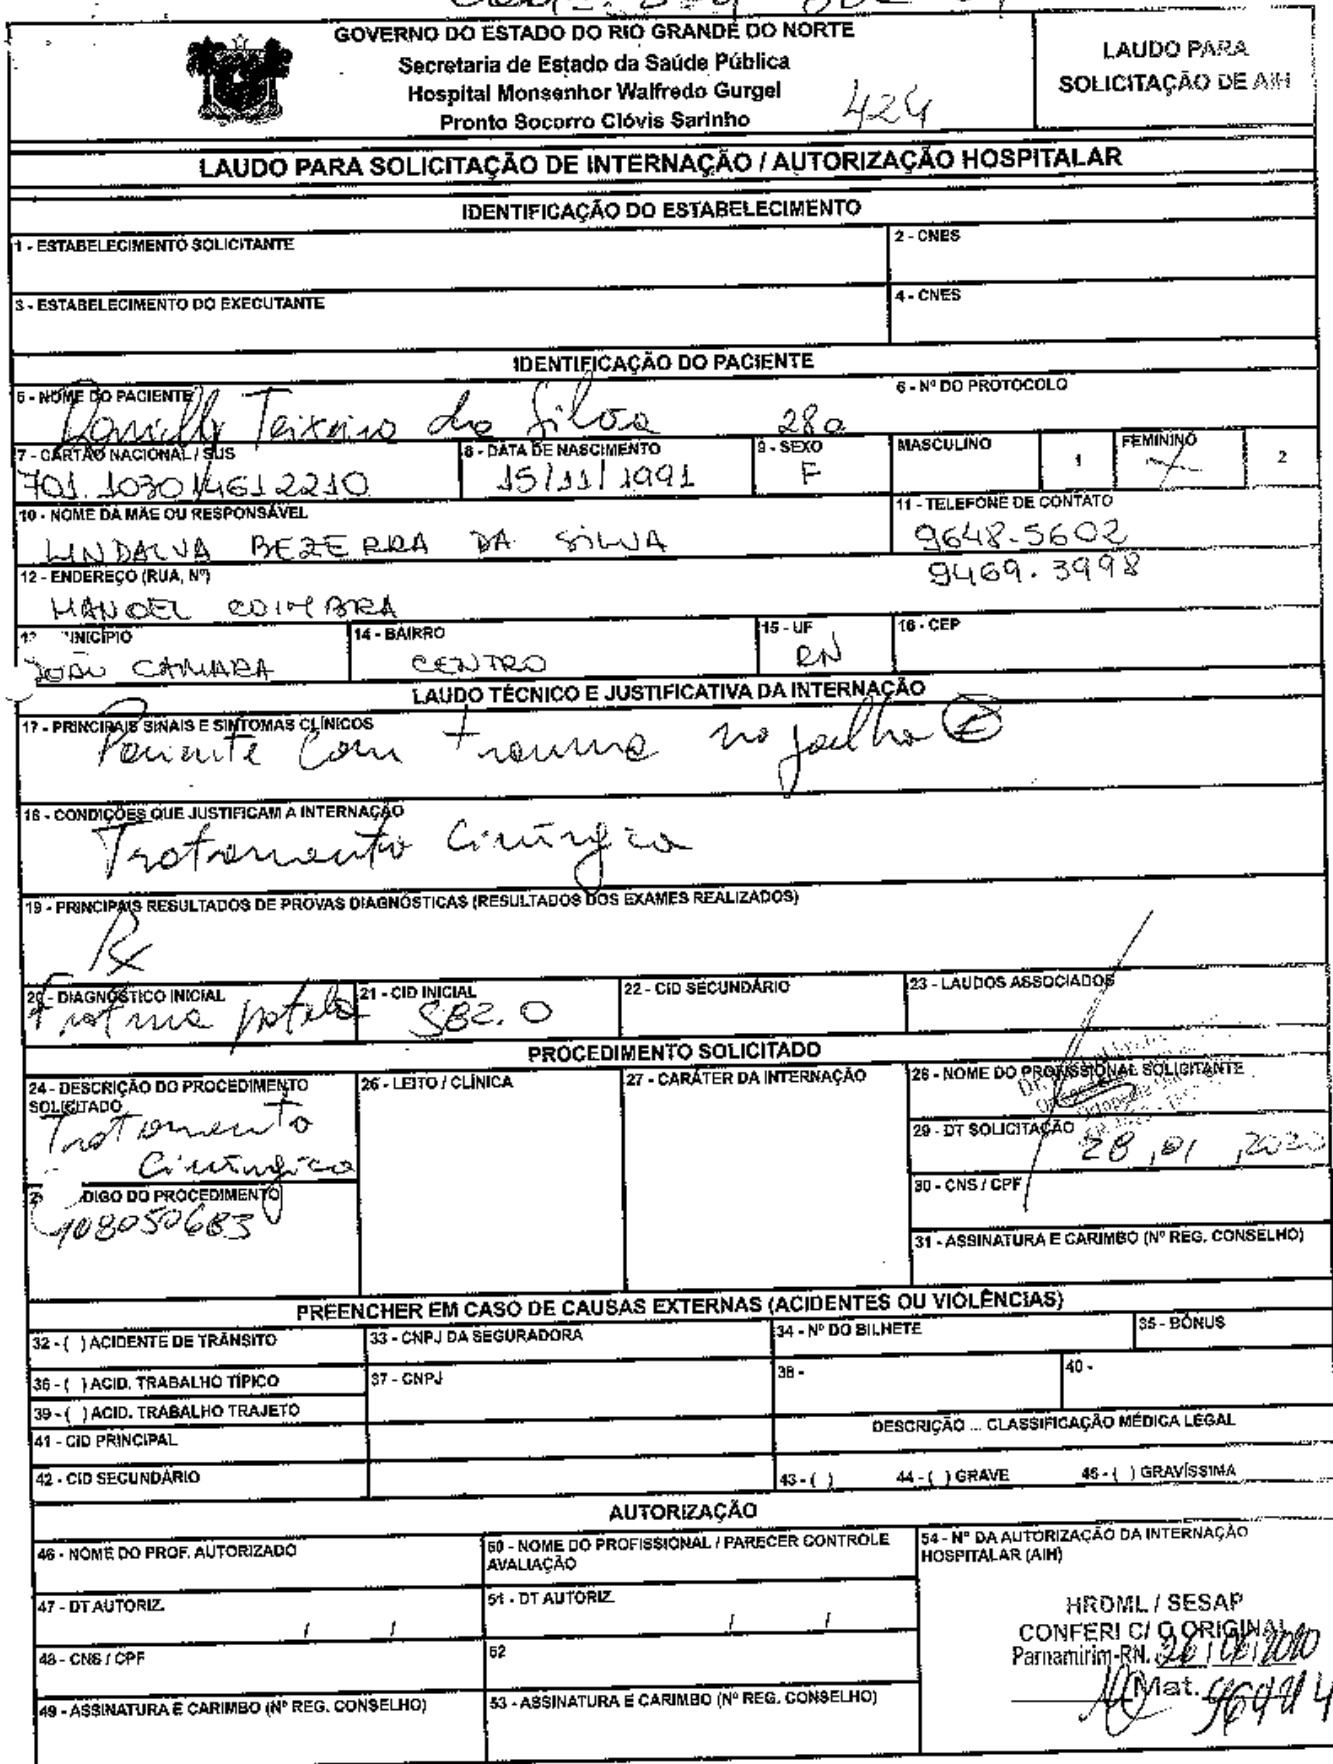 GOVERNO DO ESTADO DO RIO GRANDE DO NORTE
Secretaria de Estado da Saúde Pública
Hospital Monsenhor Walfredo Gurgel
Pronto Socorro Clóvis Sarinho
424
LAUDO PARA
SOLICITAÇÃO DE AIH
LAUDO PARA SOLICITAÇÃO DE INTERNAÇÃO / AUTORIZAÇÃO HOSPITALAR
IDENTIFICAÇÃO DO ESTABELECIMENTO
1 - ESTABELECIMENTO SOLICITANTE
2 - CNES
3 - ESTABELECIMENTO DO EXECUTANTE
4 - CNES
IDENTIFICAÇÃO DO PACIENTE
5 - NOME DO PACIENTE
6 - Nº DO PROTOCOLO
Danielly Teixeira da Silva 28a
7 - CARTÃO NACIONAL / SUS
701.103014612210
8 - DATA DE NASCIMENTO
15/11/1991
9 - SEXO
F
MASCULINO 1 FEMININO 2
10 - NOME DA MÃE OU RESPONSÁVEL
LINDALVA BEZERRA DA SILVA
11 - TELEFONE DE CONTATO
9648-5602
9469.3998
12 - ENDEREÇO (RUA, Nº)
MANOEL COIMBRA
INICÍPIO
JOÃO CAMARA
14 - BAIRRO
CENTRO
15 - UF
RN
16 - CEP
LAUDO TÉCNICO E JUSTIFICATIVA DA INTERNAÇÃO
17 - PRINCIPAIS SINAIS E SINTOMAS CLÍNICOS
Paciente com trauma no joelho E
18 - CONDIÇÕES QUE JUSTIFICAM A INTERNAÇÃO
Tratamento Cirúrgico
19 - PRINCIPAIS RESULTADOS DE PROVAS DIAGNÓSTICAS (RESULTADOS DOS EXAMES REALIZADOS)
Rx
20 - DIAGNÓSTICO INICIAL
Fratura patela
21 - CID INICIAL
S82.0
22 - CID SECUNDÁRIO
23 - LAUDOS ASSOCIADOS
PROCEDIMENTO SOLICITADO
24 - DESCRIÇÃO DO PROCEDIMENTO
SOLICITADO
Tratamento
Cirúrgico
26 - LEITO / CLÍNICA
27 - CARÁTER DA INTERNAÇÃO
28 - NOME DO PROFISSIONAL SOLICITANTE
29 - DT SOLICITAÇÃO
28, 01, 2020
30 - CNS / CPF
DIGO DO PROCEDIMENTO
31 - ASSINATURA E CARIMBO (Nº REG. CONSELHO)
PREENCHER EM CASO DE CAUSAS EXTERNAS (ACIDENTES OU VIOLÊNCIAS)
32 - ( ) ACIDENTE DE TRÂNSITO
33 - CNPJ DA SEGURADORA
34 - Nº DO BILHETE
35 - BÔNUS
36 - ( ) ACID. TRABALHO TÍPICO
37 - CNPJ
38 -
40 -
39 - ( ) ACID. TRABALHO TRAJETO
DESCRIÇÃO ... CLASSIFICAÇÃO MÉDICA LEGAL
41 - CID PRINCIPAL
42 - CID SECUNDÁRIO
43 - ( ) 44 - ( ) GRAVE 45 - ( ) GRAVÍSSIMA
AUTORIZAÇÃO
46 - NOME DO PROF. AUTORIZADO
50 - NOME DO PROFISSIONAL / PARECER CONTROLE
AVALIAÇÃO
54 - Nº DA AUTORIZAÇÃO DA INTERNAÇÃO
HOSPITALAR (AIH)
47 - DT AUTORIZ.
/ /
51 - DT AUTORIZ.
/ /
48 - CNS / CPF
52
49 - ASSINATURA E CARIMBO (Nº REG. CONSELHO)
53 - ASSINATURA E CARIMBO (Nº REG. CONSELHO)
HRDML / SESAP
CONFERI C/ O ORIGINAL
Parnamirim-RN.
Mat.